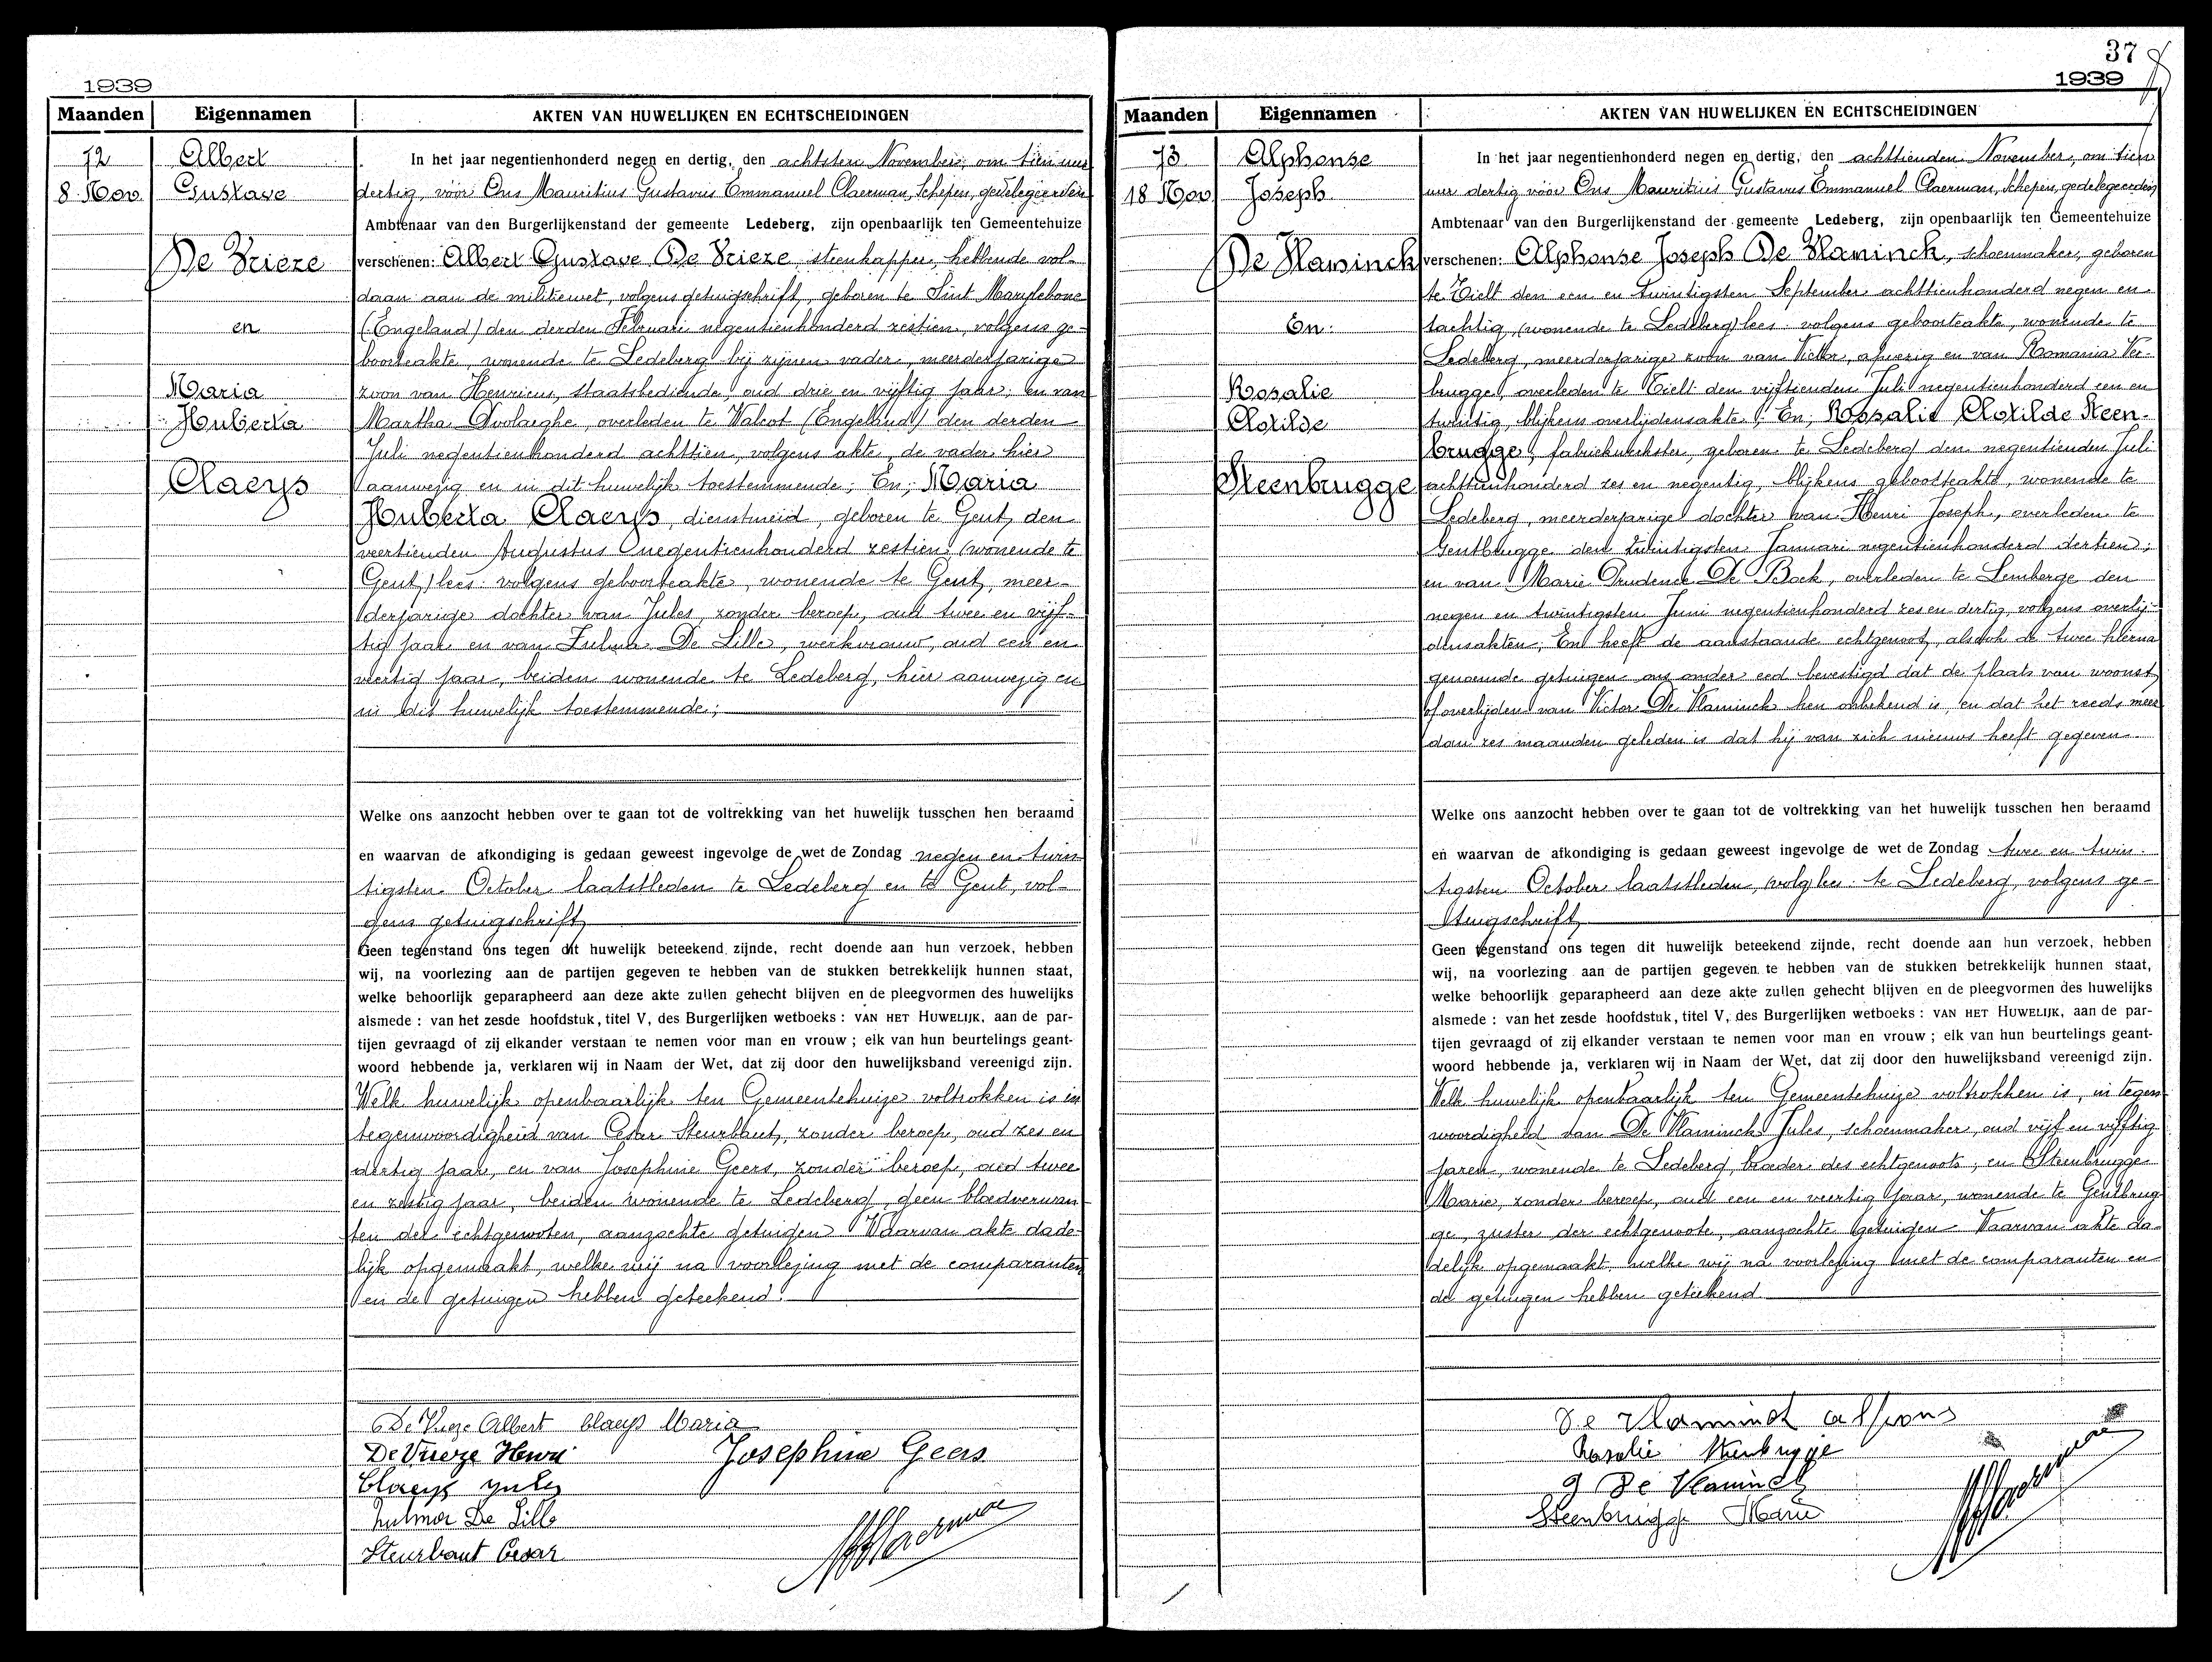 1939
Maanden Eigennamen AKTEN VAN HUWELIJKEN EN ECHTSCHEIDINGEN
72
8 Nov.
Albert
Gustave
De Vrieze
en
Maria
Huberta
Claeys
In het jaar negentienhonderd negen en dertig, den achtsten November, om tien uur
dertig, vóór Ons Mauritius Gustavus Emmanuel Claerman, Schepen, gedelegeerden
Ambtenaar van den Burgerlijkenstand der gemeente Ledeberg, zijn openbaarlijk ten Gemeentehuize
verschenen: Albert Gustave De Vrieze, steenkapper, hebbende vol-
daan aan de militiewet, volgens getuigschrift, geboren te Sint Marylebone
(Engeland) den derden Februari negentienhonderd zestien, volgens ge-
boorteakte, wonende te Ledeberg bij zijnen vader, meerderjarige
zoon van Henricus, staatsbediende, oud drie en vijftig jaar; en van
Martha Dvolaeghe, overleden te Walcot (Engeland) den derden
Juli negentienhonderd achttien, volgens akte, de vader hier
aanwezig en in dit huwelijk toestemmende; En, Maria
Huberta Claeys, dienstmeid, geboren te Gent, den
veertienden Augustus negentienhonderd zestien, (wonende te
Gent) lees: volgens geboorteakte, wonende te Gent, meer-
derjarige dochter van Jules, zonder beroep, oud twee en vijf-
tig jaar en van Zulma De Lille, werkvrouw, oud een en
veertig jaar, beiden wonende te Ledeberg, hier aanwezig en
in dit huwelijk toestemmende;
Welke ons aanzocht hebben over te gaan tot de voltrekking van het huwelijk tusschen hen beraamd
en waarvan de afkondiging is gedaan geweest ingevolge de wet de Zondag negen en twin
tigsten October laatstleden te Ledeberg en te Gent, vol-
gens getuigschrift
Geen tegenstand ons tegen dit huwelijk beteekend zijnde, recht doende aan hun verzoek, hebben
wij, na voorlezing aan de partijen gegeven te hebben van de stukken betrekkelijk hunnen staat,
welke behoorlijk geparapheerd aan deze akte zullen gehecht blijven en de pleegvormen des huwelijks
alsmede : van het zesde hoofdstuk, titel V, des Burgerlijken wetboeks : VAN HET HUWELIJK, aan de par-
tijen gevraagd of zij elkander verstaan te nemen voor man en vrouw ; elk van hun beurtelings geant-
woord hebbende ja, verklaren wij in Naam der Wet, dat zij door den huwelijksband vereenigd zijn.
Welk huwelijk openbaarlijk ten Gemeentehuize voltrokken is in
tegenwoordigheid van Cesar Steurbaut, zonder beroep, oud zes en
dertig jaar, en van Josephine Geers, zonder beroep, oud twee
en zestig jaar, beiden wonende te Ledeberg, geen bloedverwan-
ten der echtgenoten, aanzochte getuigen. Waarvan akte dade-
lijk opgemaakt, welke wij na voorlezing met de comparanten
en de getuigen hebben geteekend.
De Vrieze Albert Claeys Maria
De Vrieze Henri Josephine Geers
Claeys Jules
Zulma De Lille
Steurbaut Cesar
37
1939
Maanden Eigennamen AKTEN VAN HUWELIJKEN EN ECHTSCHEIDINGEN
73
18 Nov
Alphonse
Joseph
De Vlaminck
En:
Rosalie
Clotilde
Steenbrugge
In het jaar negentienhonderd negen en dertig, den achttienden November, om tien
uur dertig vóór Ons Mauritius Gustavus Emmanuel Claerman, Schepen, gedelegeerden
Ambtenaar van den Burgerlijkenstand der gemeente Ledeberg, zijn openbaarlijk ten Gemeentehuize
verschenen: Alphonse Joseph De Vlaminck, schoenmaker, geboren
te Tielt den een en twintigsten September achttienhonderd negen en
tachtig, (wonende te Ledeberg) lees: volgens geboorteakte, wonende te
Ledeberg, meerderjarige zoon van Victor, afwezig en van Romania Ver-
brugge, overleden te Tielt den vijftienden Juli negentienhonderd een en
twintig, blijkens overlijdensakte; En, Rosalie Clotilde Steen-
brugge, fabriekwerkster, geboren te Ledeberg den negentienden Juli
achttienhonderd zes en negentig, blijkens geboorteakte, wonende te
Ledeberg, meerderjarige dochter van Henri Joseph, overleden te
Gentbrugge den twintigsten Januari negentienhonderd dertien;
en van Marie Prudence De Bock, overleden te Lemberge den
negen en twintigsten Juni negentienhonderd zes en dertig, volgens overlij-
densakten; En heeft de aanstaande echtgenoot, alsook de twee hierna
genoemde getuigen ons onder eed bevestigd dat de plaats van woonst
of overlijden van Victor De Vlaminck hen onbekend is, en dat het reeds meer
dan zes maanden geleden is dat hij van zich nieuws heeft gegeven.
Welke ons aanzocht hebben over te gaan tot de voltrekking van het huwelijk tusschen hen beraamd
en waarvan de afkondiging is gedaan geweest ingevolge de wet de Zondag twee en twin-
tigsten October laatstleden, (volg) lees: te Ledeberg, volgens ge-
tuigschrift
Geen tegenstand ons tegen dit huwelijk beteekend zijnde, recht doende aan hun verzoek, hebben
wij, na voorlezing aan de partijen gegeven te hebben van de stukken betrekkelijk hunnen staat,
welke behoorlijk geparapheerd aan deze akte zullen gehecht blijven en de pleegvormen des huwelijks
alsmede : van het zesde hoofdstuk, titel V, des Burgerlijken wetboeks : VAN HET HUWELIJK, aan de par-
tijen gevraagd of zij elkander verstaan te nemen voor man en vrouw ; elk van hun beurtelings geant-
woord hebbende ja, verklaren wij in Naam der Wet, dat zij door den huwelijksband vereenigd zijn.
Welk huwelijk openbaarlijk ten Gemeentehuize voltrokken is, in tegen-
woordigheid van De Vlaminck Jules, schoenmaker, oud vijf en vijftig
jaren, wonende te Ledeberg, broeder des echtgenoots, en Steenbrugge
Marie, zonder beroep, oud een en veertig jaar, wonende te Gentbrug-
ge, zuster der echtgenoote, aanzochte getuigen. Waarvan akte da-
delijk opgemaakt, welke wij na voorlezing met de comparanten en
de getuigen hebben geteekend.
De Vlaminck Alfons
Rosalie Steenbrugge
J De Vlaminck
Steenbrugge Marie